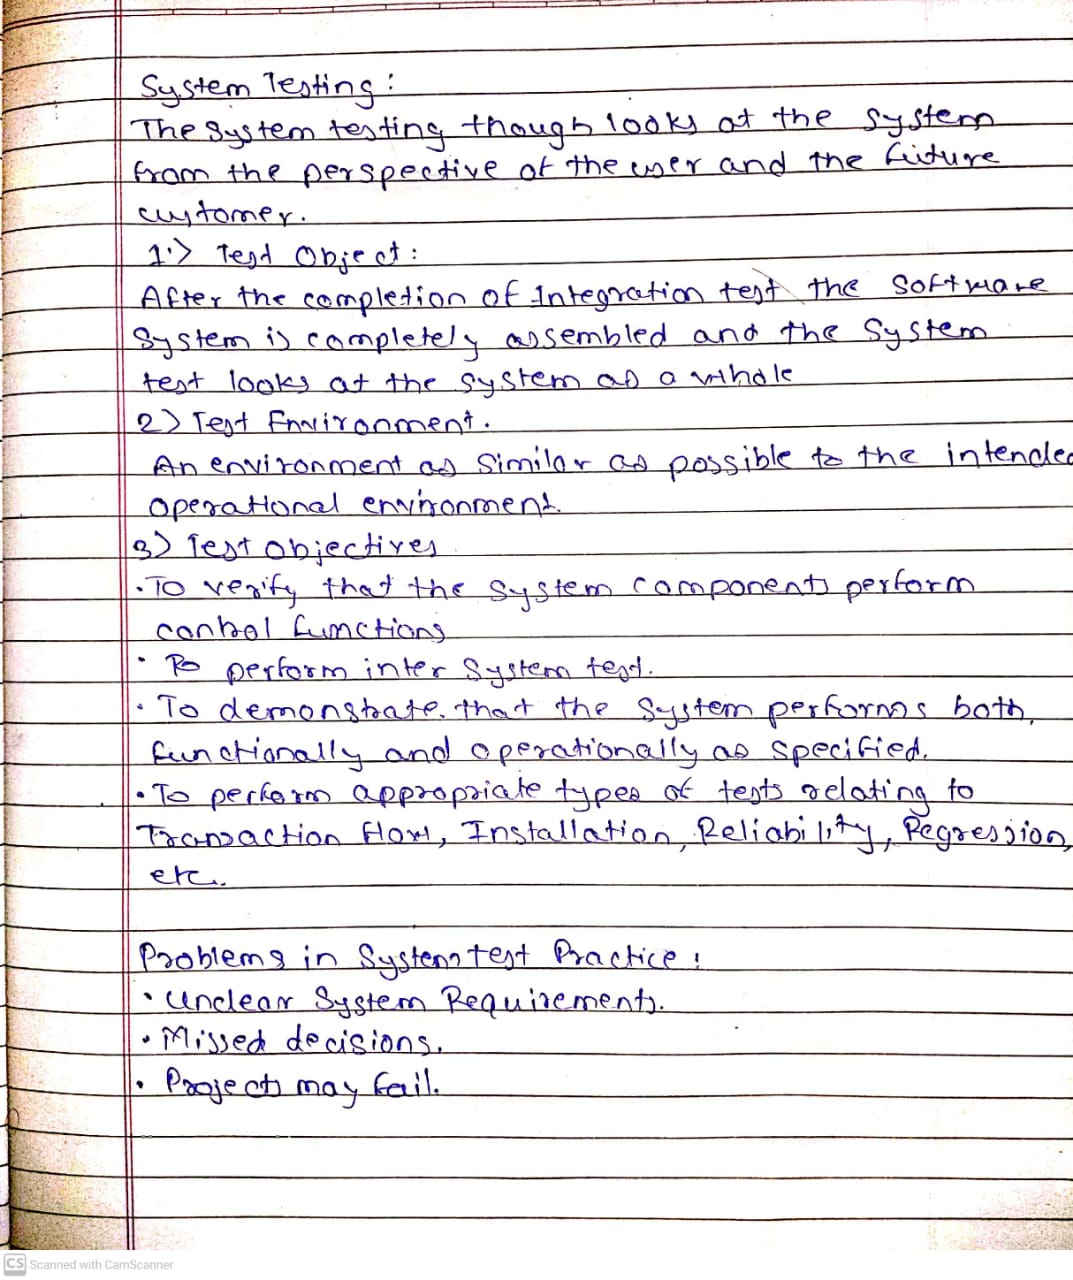 System Testing :
The System testing though looks at the system
from the perspective of the user and the future
customer.
1.> Test Object :
After the completion of Integration test the Software
System is completely assembled and the System
test looks at the system as a whole
2) Test Environment.
An environment as similar as possible to the intended
operational environment.
3) Test objectives
• To verify that the system components perform
control functions
• To perform inter system test.
• To demonstrate. that the system performs both,
functionally and operationally as specified.
• To perform appropriate types of tests relating to
Transaction flow, Installation, Reliability, Regression,
etc.
Problems in System test Practice :
• Unclear System Requirements.
• Missed decisions.
• Projects may fail.
CS Scanned with CamScanner